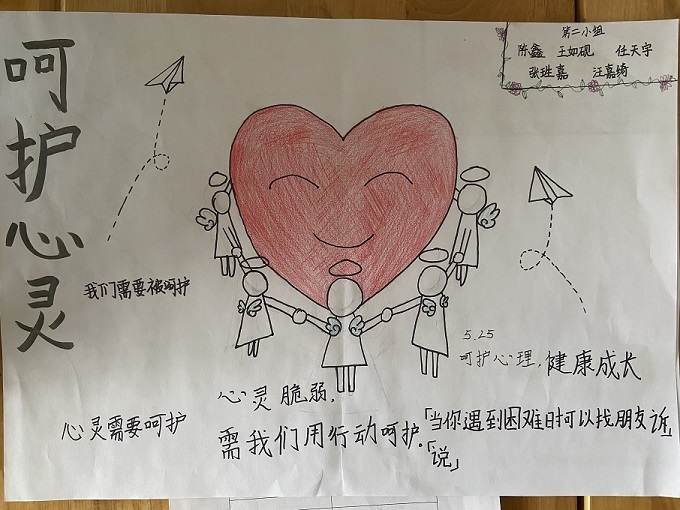 呵护心灵
第二小组
陈鑫 王如砚 任天宇
张珄嘉 汪嘉绮
我们需要被呵护
5.25
呵护心理,健康成长
心灵脆弱,
需我们用行动呵护.
心灵需要呵护
「当你遇到困难时可以找朋友诉」
「说」